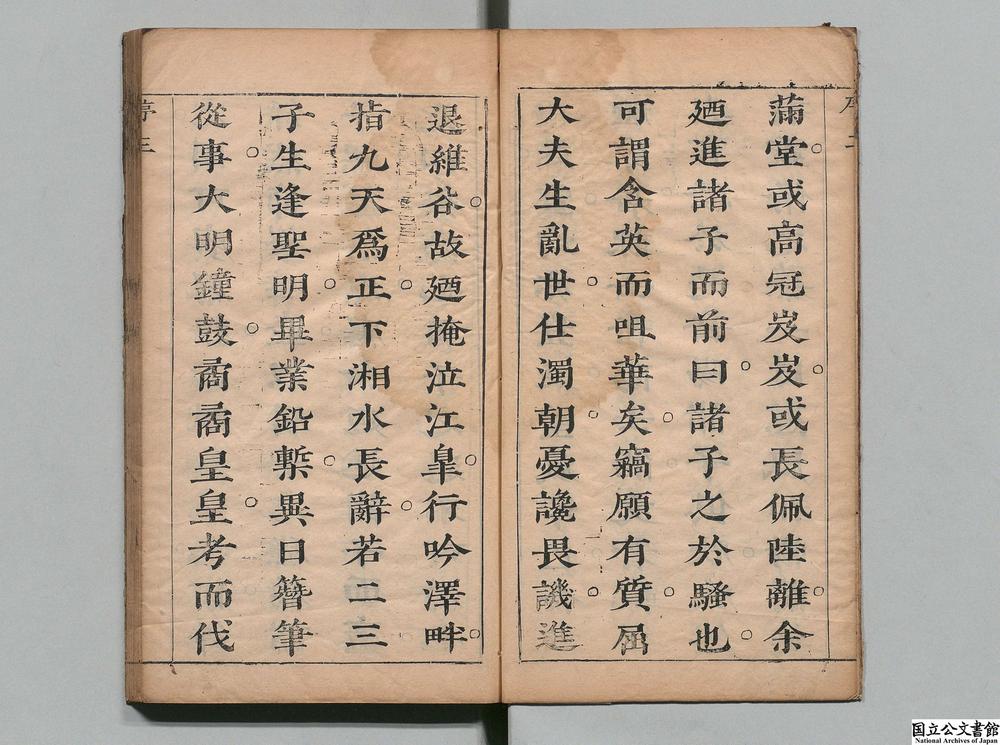 滿堂或高冠岌岌或長佩陸離余
廼進諸子而前曰諸子之於騷也
可謂含英而咀華矣竊願有質屈
大夫生亂世仕濁朝憂讒畏譏進
退維谷故廼掩泣江臯行吟澤畔
指九天爲正下湘水長辭若二三
子生逢聖明畢業鉛槧異日簪筆
從事大明鐘鼓矞矞皇皇考而伐
序三
国立公文書館
National Archives of Japan